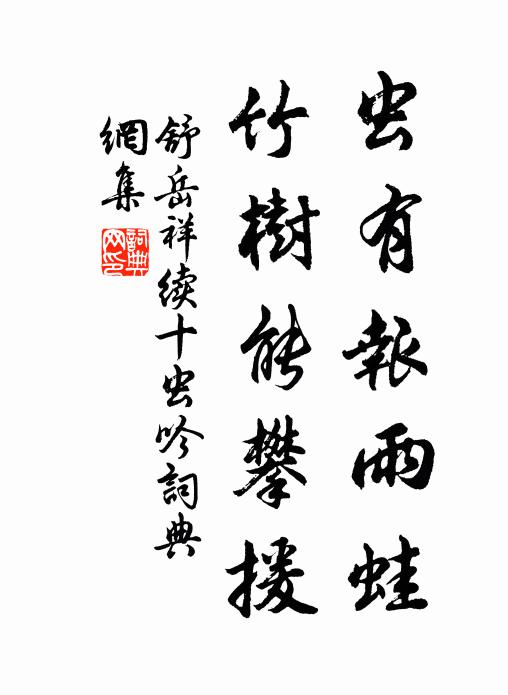 虫有報雨蛙
竹樹能攀援
舒岳祥续十虫吟詞典
網集
詞典網印